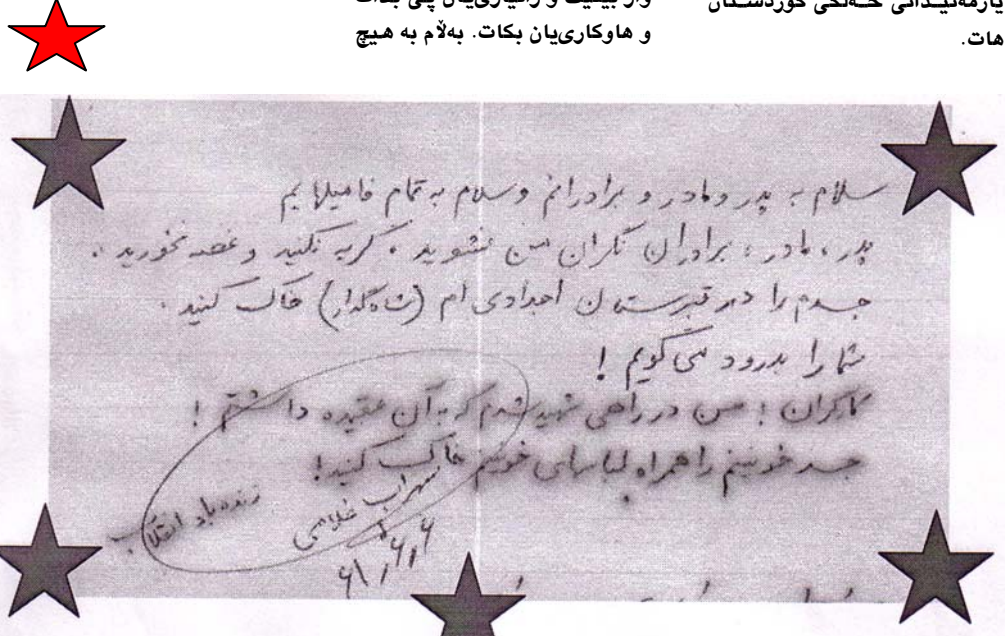 یارمەتیدانی خەڵکی کوردستان
هات.
و هاوکاری‌یان بکات. بەڵام بە هیچ
سلام به پدر و مادر و برادرانم و سلام به تمام فامیلهایم
پدر، مادر، برادران نگران من نشوید. گریه نکنید و غصه نخورید.
جسدم را در قبرستان اجدادی ام () خاک کنید.
شما را بدرود می گویم!
کارگران! من در راهی شهید شدم که به آن عقیده داشتم!
جسد خونینم را همراه لباسهای خونینم خاک کنید!
زنده باد انقلاب
سهراب